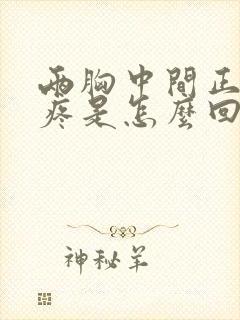 兩胸中間正
疼是怎麼回
神秘羊